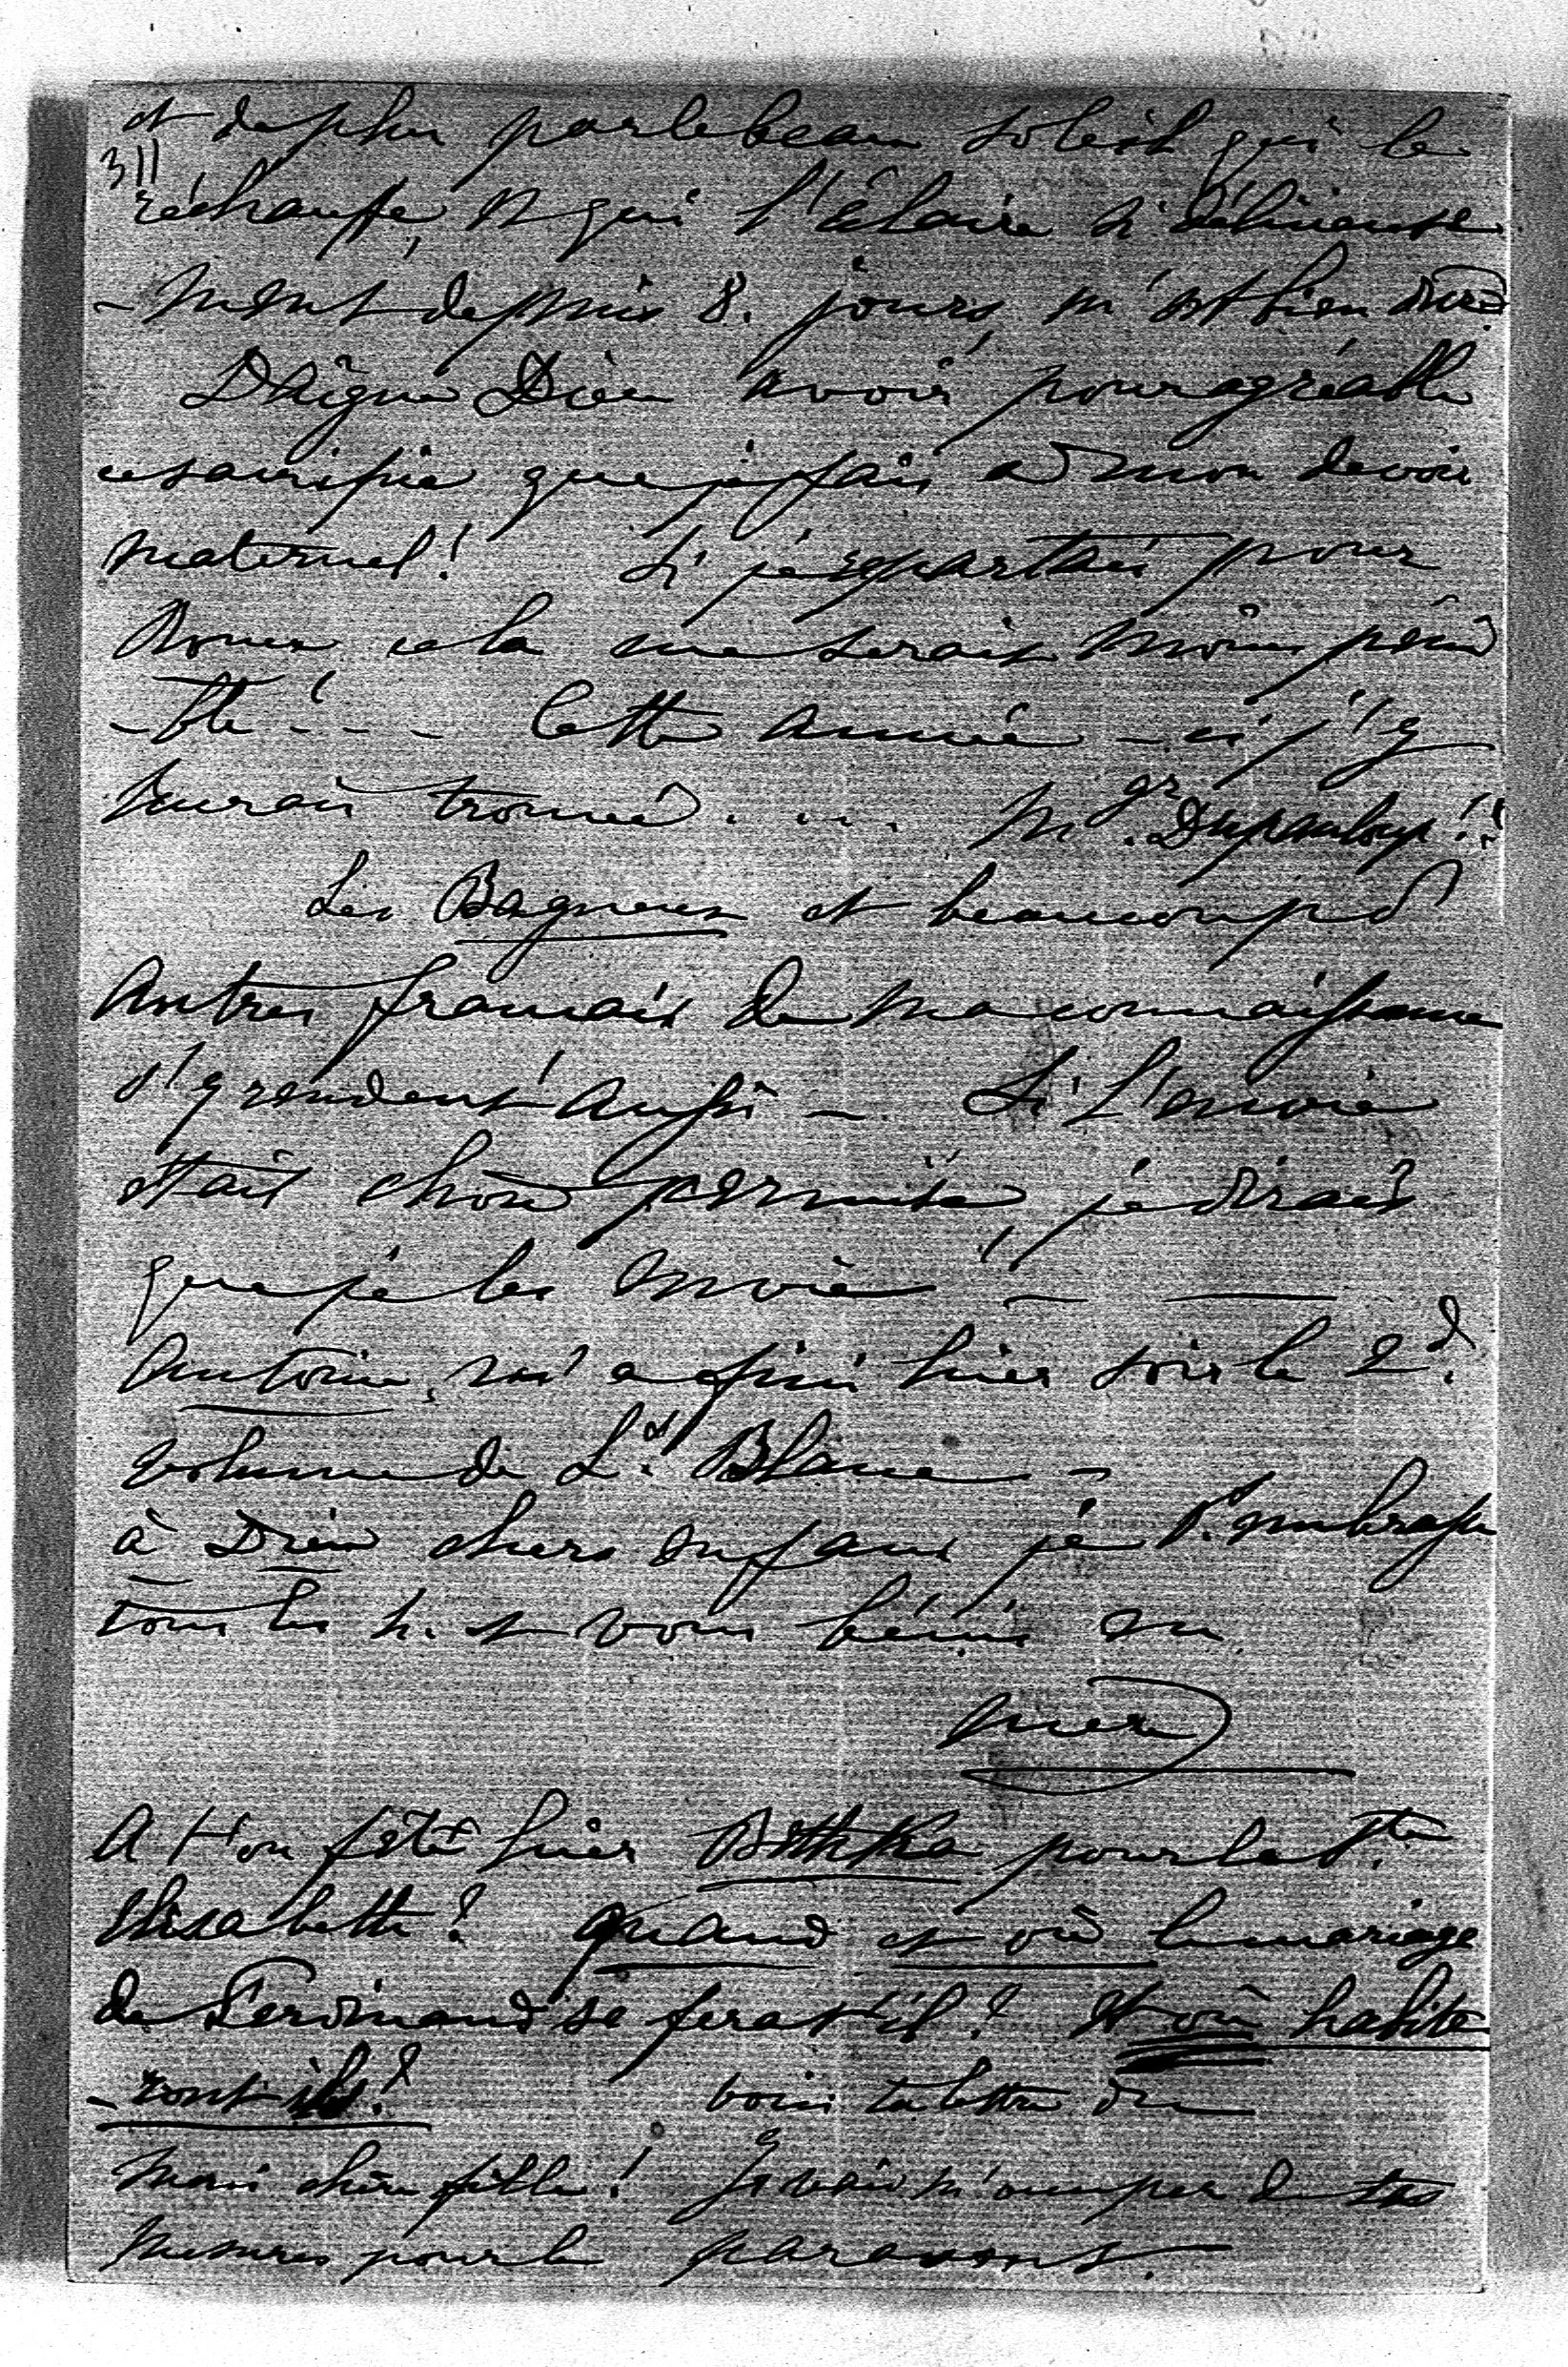 et de plus par le beau soleil qui le
311
réchauffe, et qui l'éclaire si délicieuse
-ment depuis 8. jours, m'est bien dure.
Daigne Dieu avoir pour agréable
ce sacrifice que je fais à mon devoir
maternel! Si je repartais pour
Rome cela me serait moins péni
-ble! - - - Cette année-ci j'y
aurais trouvé . . . . Mgr. Dupanloup!!
Les Bagneux et beaucoup d'
autres français de ma connaissance
s'y rendent aussi -. Si l'envie
était chose permise, je dirais
que je les envie! - —
Antoine, m'a fini hier soir le 2d.
volume de Ls. Blanc -
à Dieu chers enfans je v. embrasse
tous les h. et vous bénis en
mère
A t'on fêté hier Bethka pour la Ste.
Elisabeth? quand et où le mariage
de Ferdinand se ferat'il? et où habite
-ront ils? voici ta lettre du
mari chère fille! Je vais m'occuper de tes
mesures pour le paravent.